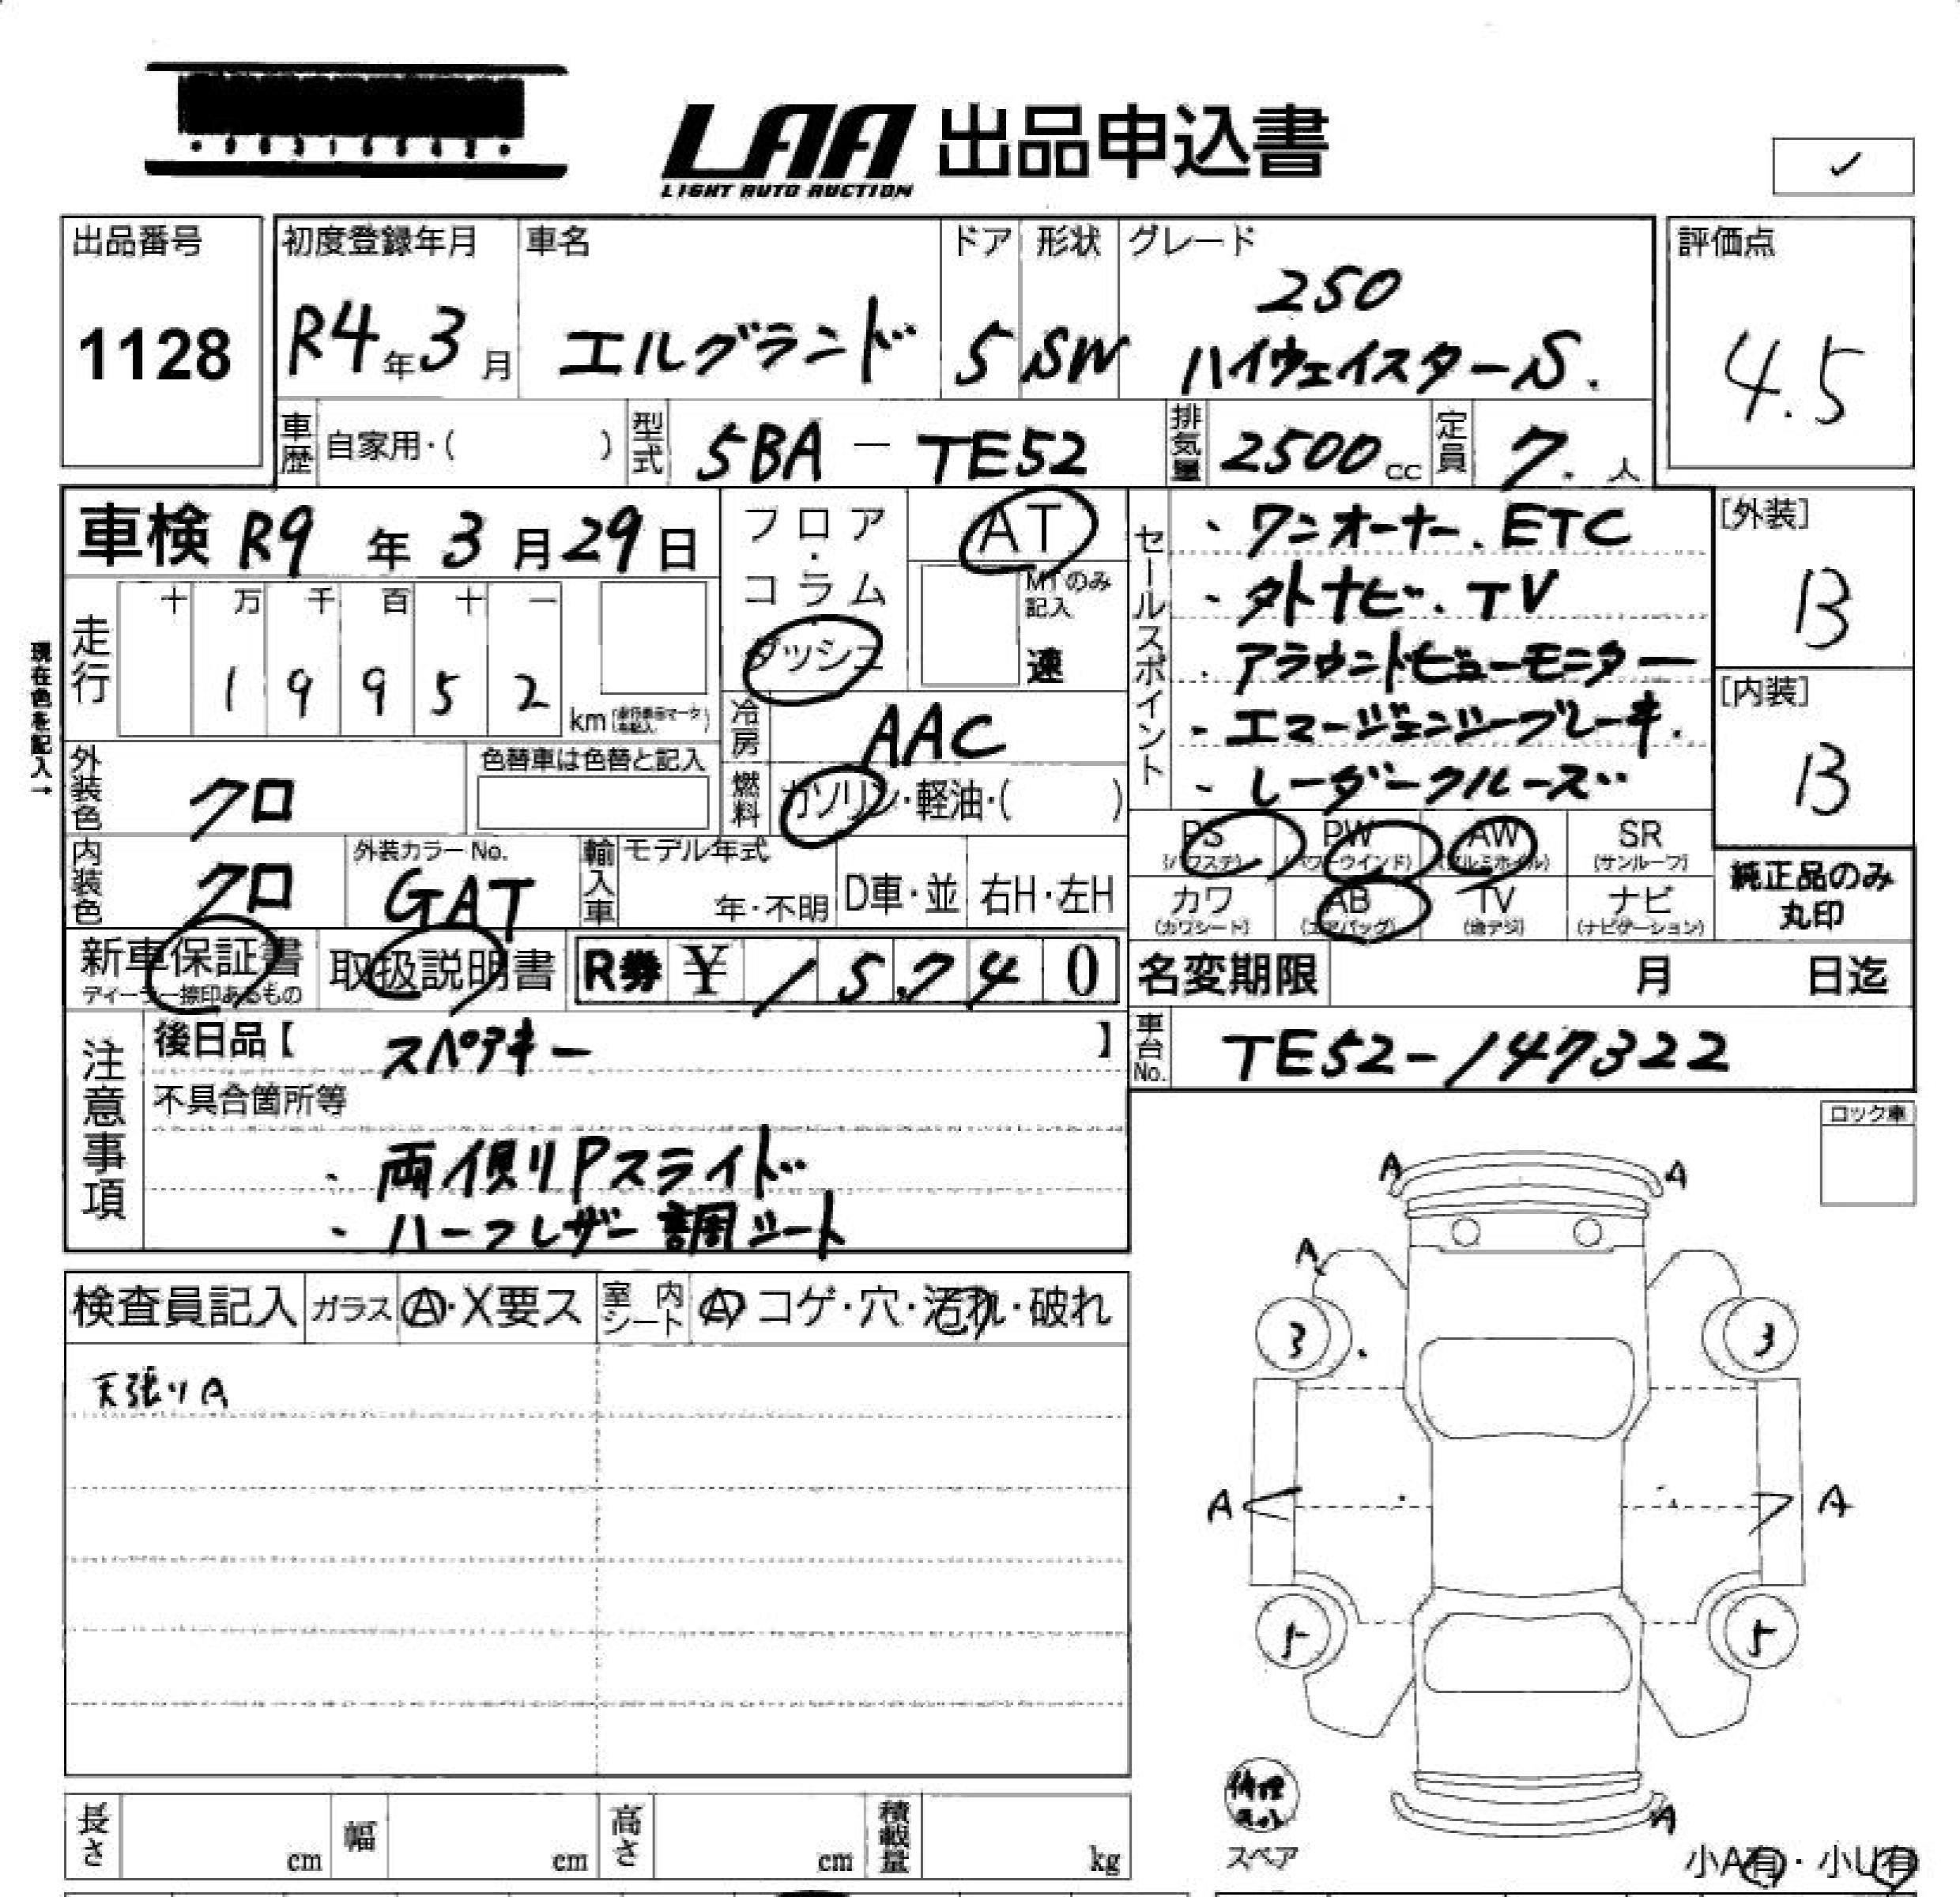 LAA 出品申込書
LIGHT AUTO AUCTION
✓
出品番号
1128
初度登録年月
R4年3月
車名
エルグランド
ドア
5
形状
SW
グレード
250
ハイウェイスターS.
評価点
4.5
車歴
自家用・( )
型式
5BA - TE52
排気量
2500cc
定員
7.人
車検 R9年3月29日
フロア・コラム
ダッシュ
AT
MTのみ記入
速
セールスポイント
・ワンオーナー.ETC
・外ナビ.TV
・アラウンドビューモニター
・エマージェンシーブレーキ.
・レーダークルーズ
[外装]
B
[内装]
B
現在色を記入→
走行
十 万 千 百 十 一
1 9 9 5 2
km
冷房
AAC
外装色
クロ
色替車は色替と記入
燃料
ガソリン・軽油・( )
PS (パワステ)
PW (パワーウインド)
AW (アルミホイル)
SR (サンルーフ)
カワ (カワシート)
AB (エアバッグ)
TV (地デジ)
ナビ (ナビゲーション)
純正品のみ丸印
内装色
クロ
外装カラーNo.
GAT
輸入車
モデル年式
年・不明
D車・並
右H・左H
新車保証書
ディーラー捺印あるもの
取扱説明書
R券 ¥ 15,740
名変期限 月 日迄
注意事項
後日品【 スペアキー 】
不具合箇所等
・両側Pスライド
・ハーフレザー調シート
車台No.
TE52-147322
ロック車
検査員記入
ガラス
A・X要ス
室内シート
A コゲ・穴・汚れ・破れ
天張りA
A A
A
3 3
A A
5 5
A
修理
スペア
小A有・小U有
長さ cm
幅 cm
高さ cm
積載量 kg